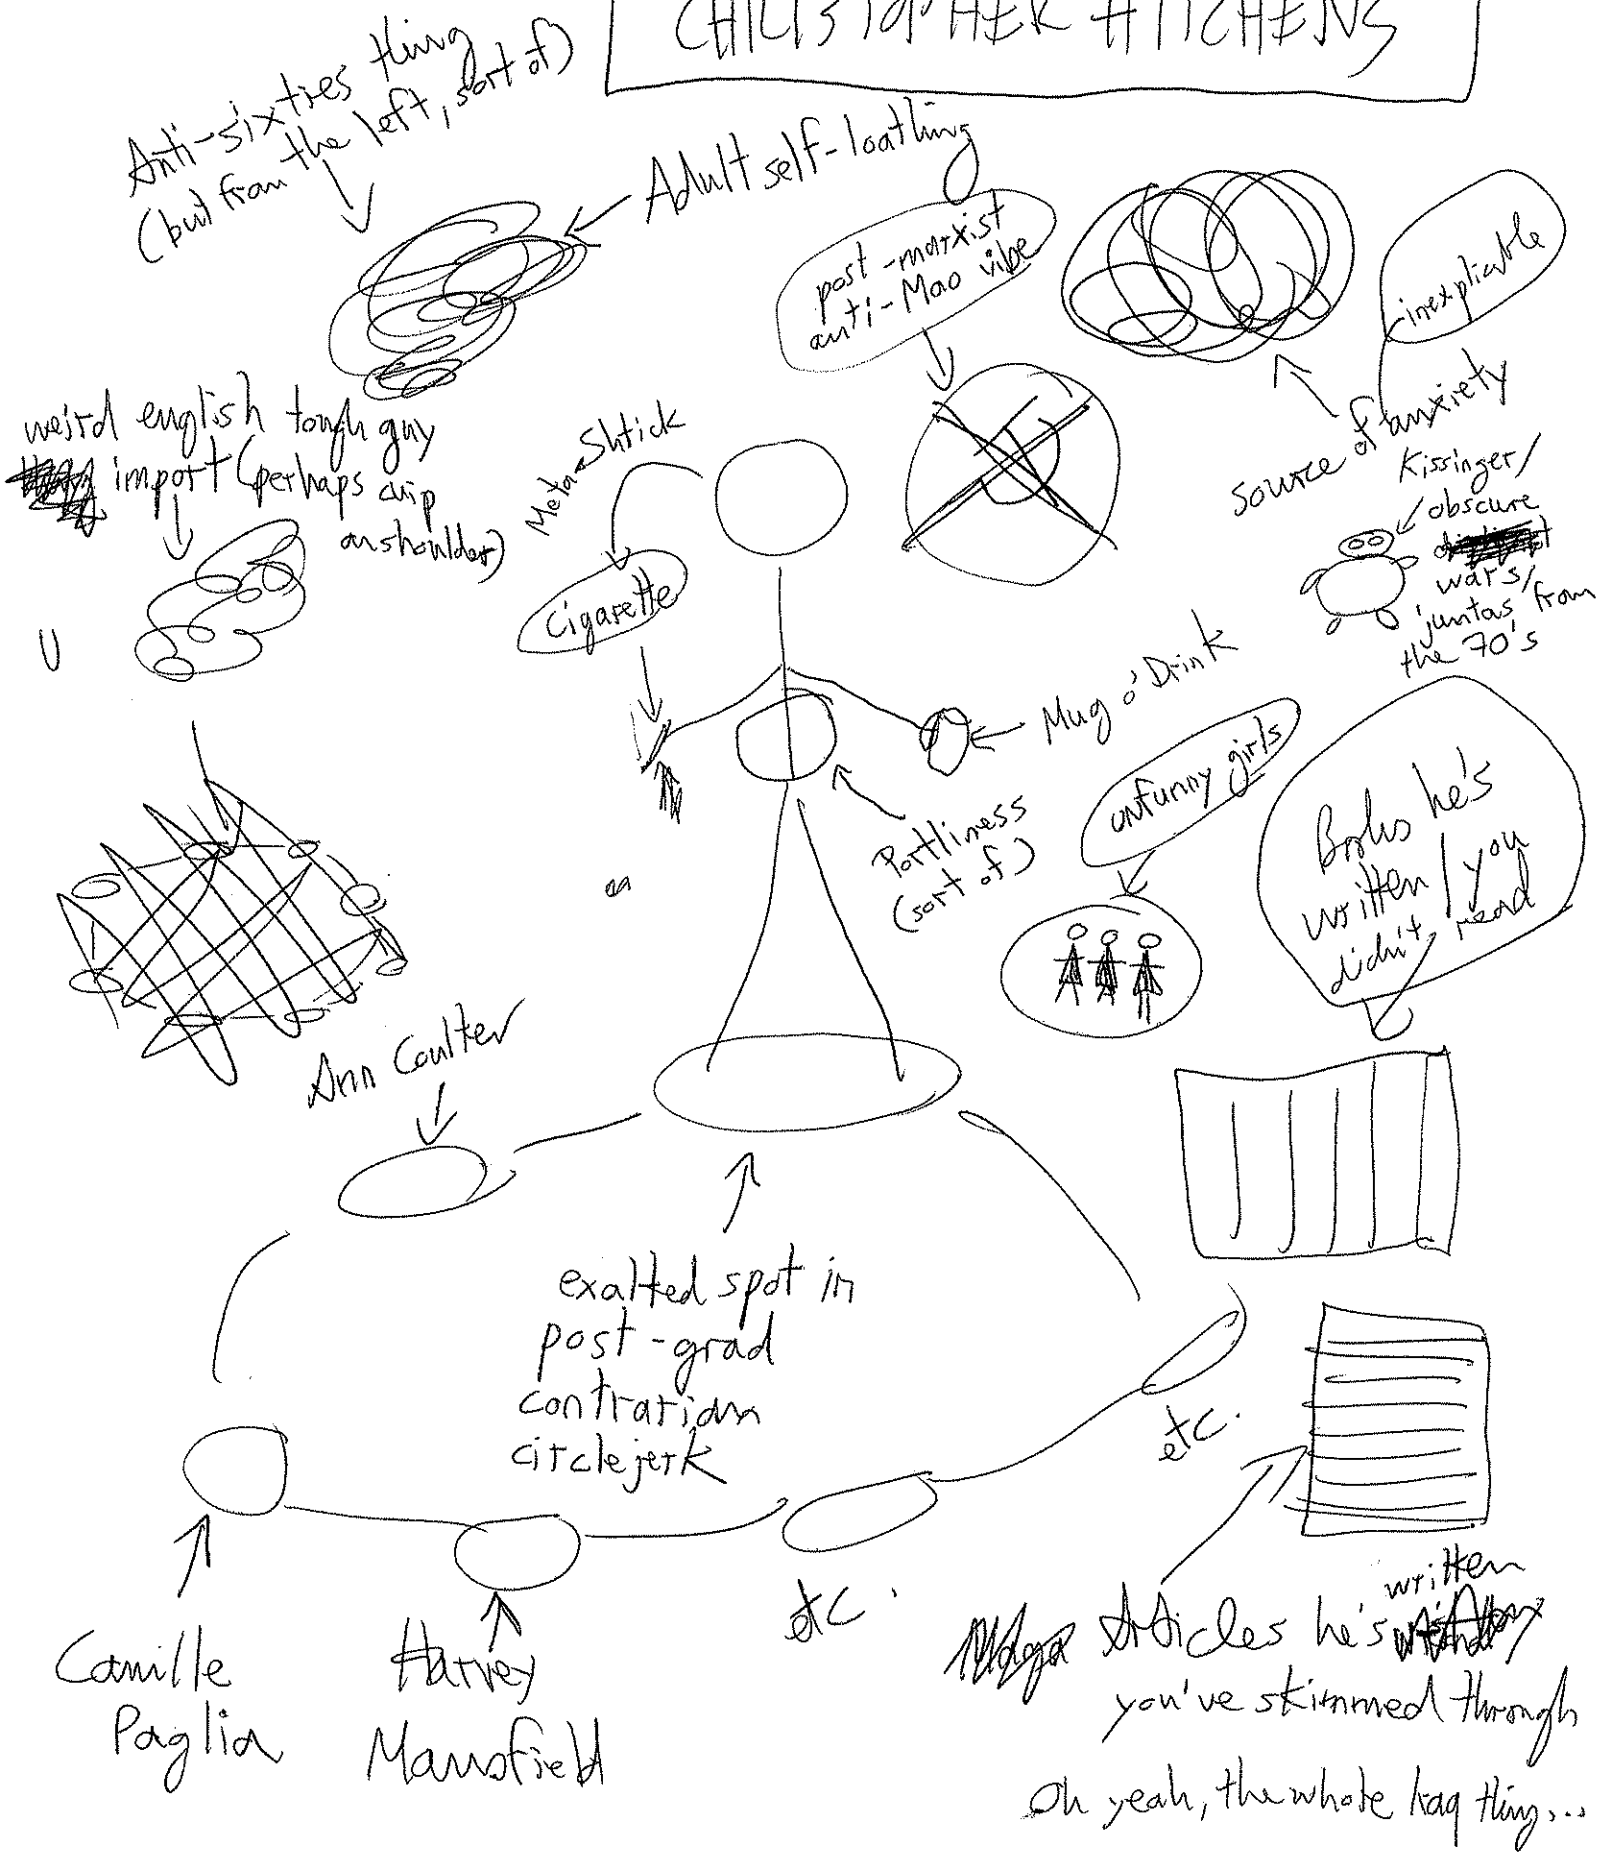 CHRISTOPHER HITCHENS
Anti-sixties thing
(but from the left, sort of)
Adult self-loathing
post-marxist
anti-Mao vibe
inexplicable
source of anxiety
weird english tough guy
import (perhaps chip
on shoulder)
Meta-Shtick
cigarette
Kissinger/
obscure
wars/
juntas from
the 70's
Mug o' Drink
Portliness
(sort of)
unfunny girls
Books he's
written / you
didn't read
Ann Coulter
exalted spot in
post-grad
contrarian
circlejerk
etc.
etc.
Camille
Paglia
Harvey
Mansfield
Articles he's written
you've skimmed through
Oh yeah, the whole Iraq thing...